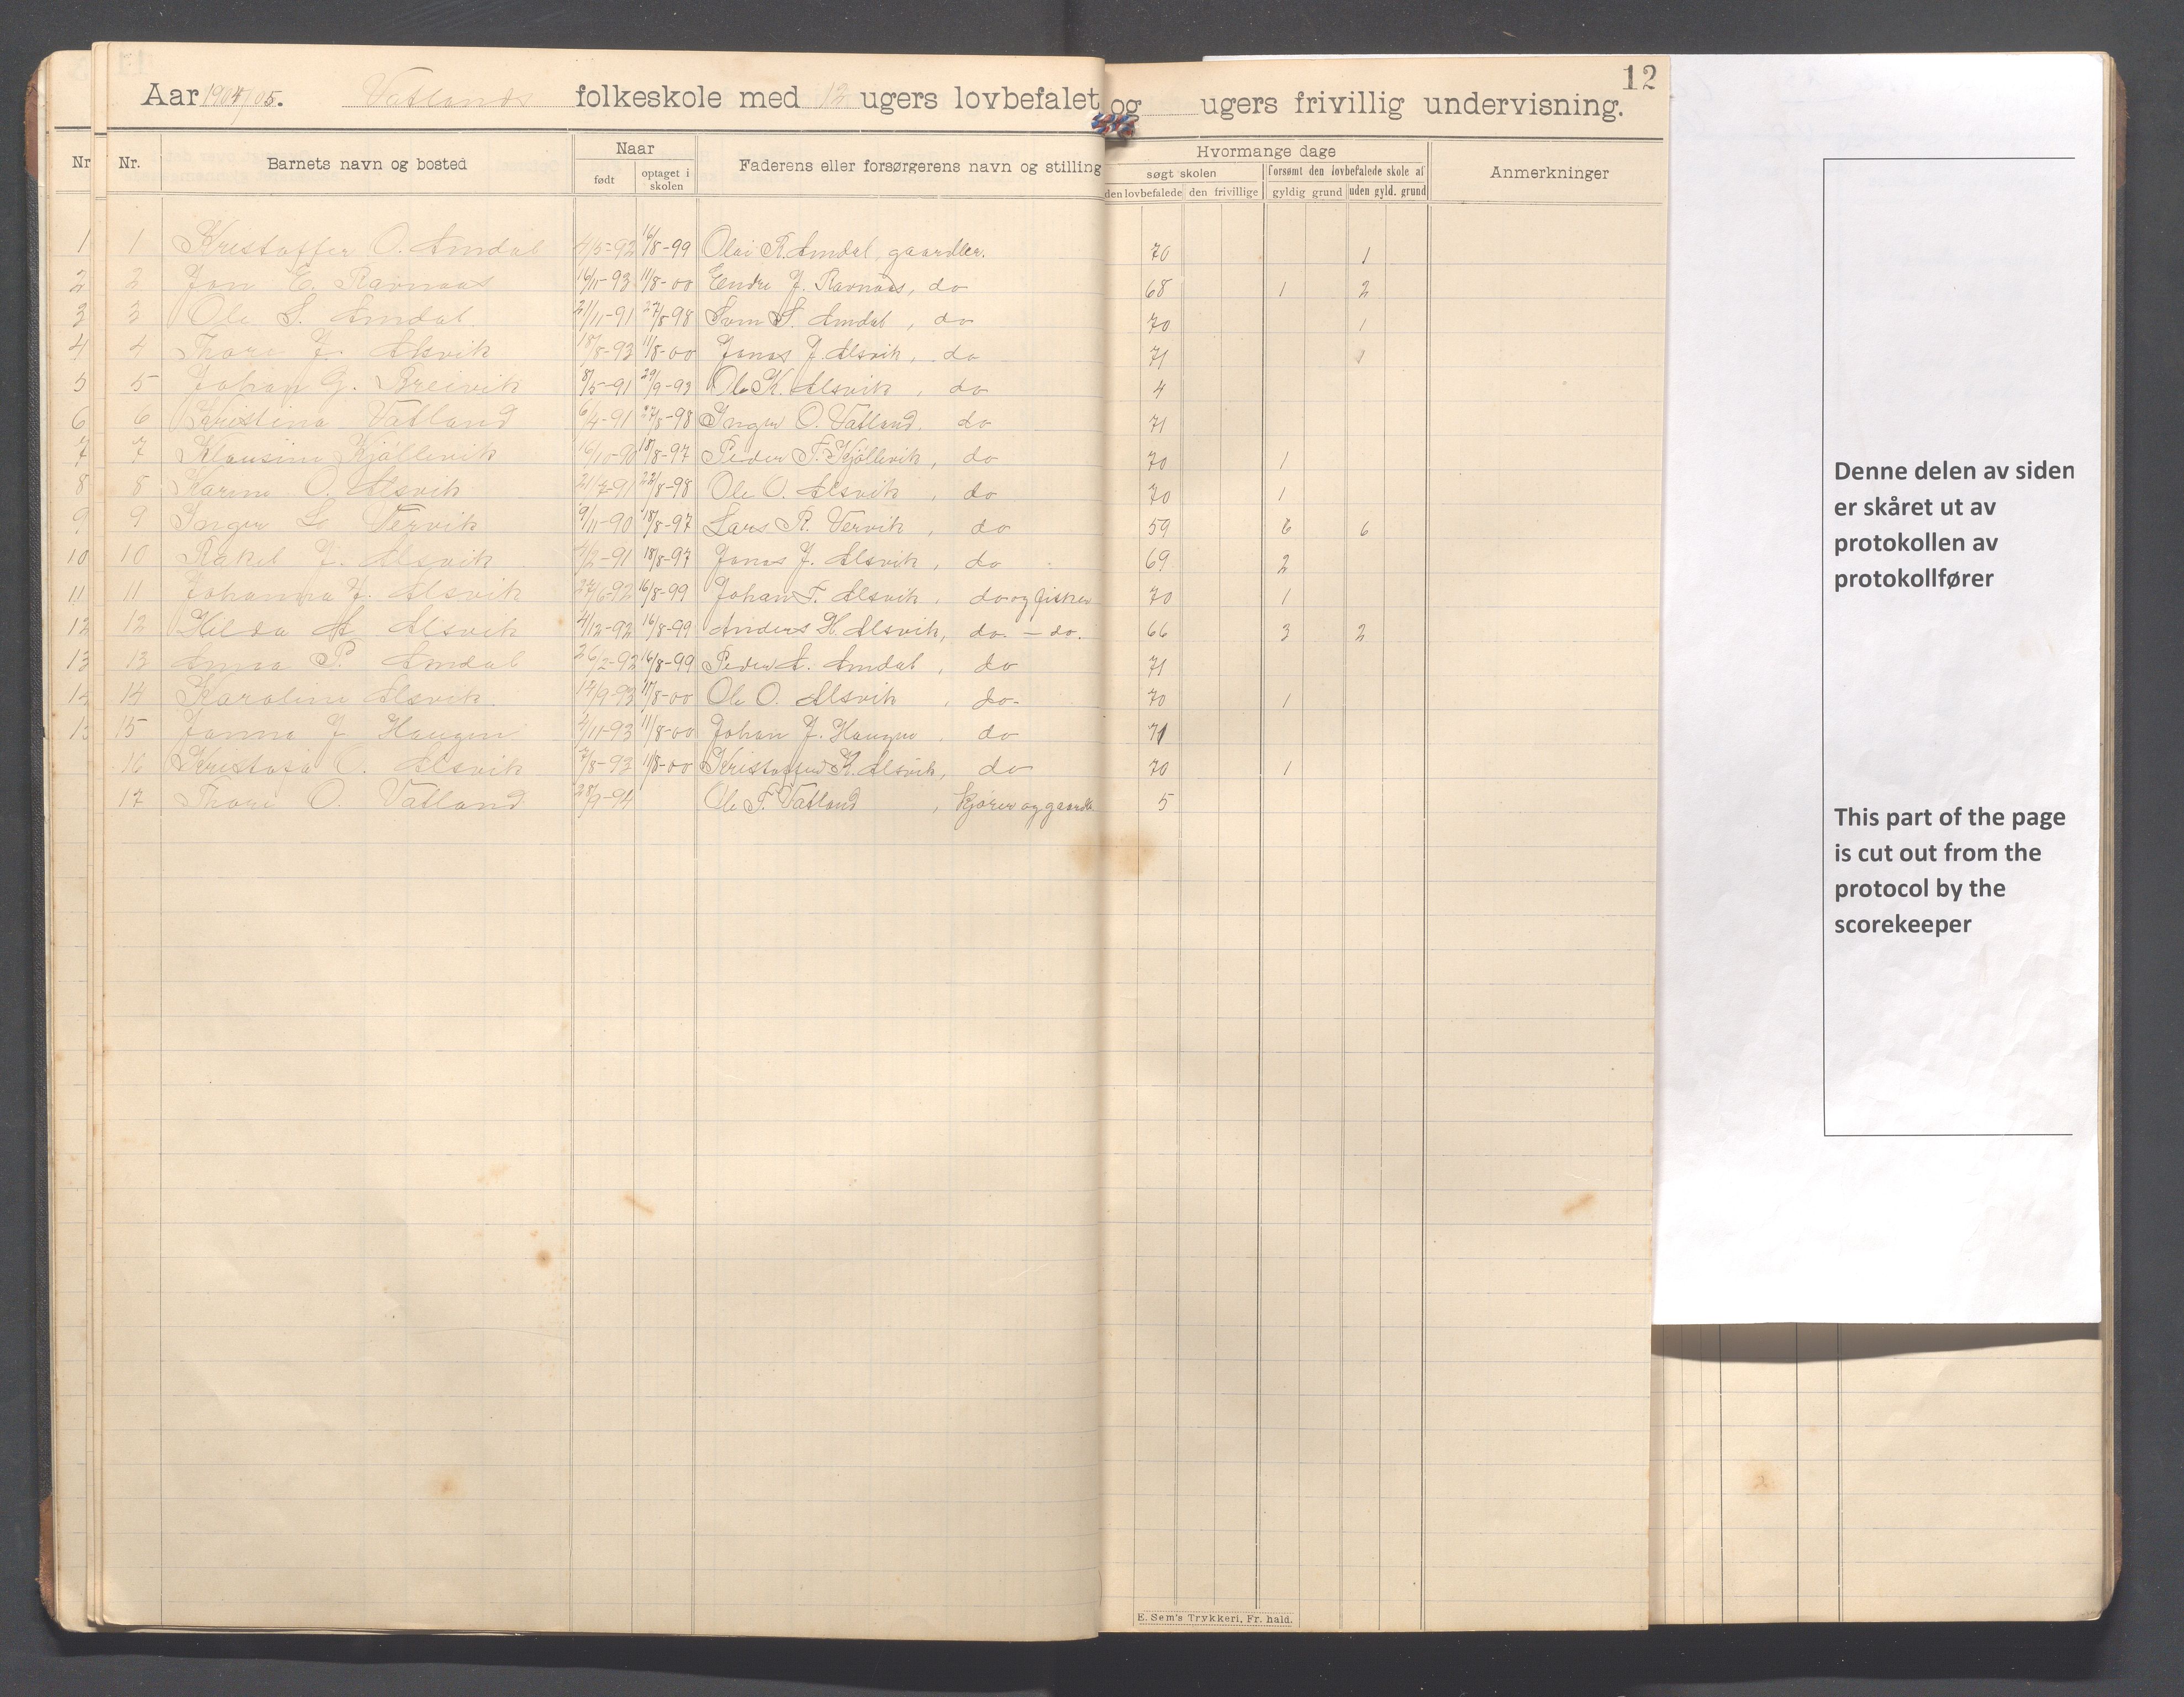 12
Aar 1904/05. Vatlands folkeskole med 12 ugers lovbefalet og ugers frivillig undervisning.
Nr. Barnets navn og bosted Naar Faderens eller forsørgerens navn og stilling Hvormange dage Anmerkninger
født optaget i skolen søgt skolen forsømt den lovbefalede skole af
den lovbefalede den frivillige gyldig grund uden gyld. grund
1 Kristoffer O. Amdal 4/5-92 16/8-99 Olai R. Amdal, gaardbr. 70 1
2 Jon E. Ravnaas 16/11-93 11/8-00 Endre J. Ravnaas, do 68 1 2
3 Ole S. Amdal 21/11-91 27/8-98 Svein S. Amdal, do 70 1
4 Thore J. Alsvik 18/8-93 11/8-00 Jonas J. Alsvik, do 71
5 Johan G. Breivik 8/5-91 29/9-93 Ole K. Alsvik, do 4
6 Kristina Vatland 6/4-91 27/8-98 Inger O. Vatland. do 71
7 Klausine Kjøllevik 16/10-90 18/8-97 Peder T. Kjøllevik, do 70 1
8 Karine O. Alsvik 21/7-91 22/8-98 Ole O. Alsvik, do 70 1
9 Inger L. Vervik 9/11-90 18/8-97 Lars R. Vervik, do 59 6 6
10 Rakel J. Alsvik 4/2-91 18/8-97 Jonas J. Alsvik, do 69 2
11 Johanna J. Alsvik 27/6-92 16/8-99 Johan T. Alsvik, do og fisker 70 1
12 Hilda A. Alsvik 4/12-92 16/8-99 Anders H. Alsvik, do. - do. 66 3 2
13 Anna P. Amdal 26/2-92 16/8-99 Peder A. Amdal, do 71
14 Karoline Alsvik 14/9-93 11/8-00 Ole O. Alsvik, do. 70 1
15 Janna J. Haugen 4/11-93 11/8-00 Johan J. Haugen, do 71
16 Kristofa O. Alsvik 7/8-93 11/8-00 Kristoffer K. Alsvik, do 70 1
17 Thore O. Vatland 28/9-94 Ole T. Vatland, kjører og gaardb. 5
E. Sem's Trykkeri, Fr. hald.
Nr
1
2
3
4
5
6
7
8
9
10
11
12
13
14
Denne delen av siden
er skåret ut av
protokollen av
protokollfører
This part of the page
is cut out from the
protocol by the
scorekeeper